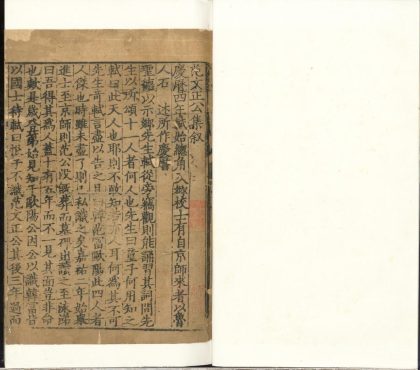 范文正公集叙
慶曆年軾始總角入鄉校士有自京師來者以魯
人石 述所作慶曆
聖德以示鄉先生軾從旁竊觀則能誦習其詞問先
生以所頌十一人者何人也先生曰童子何用知之
軾曰此天人也耶則不敢知若亦人耳何為其不可
先生奇軾言盡以告之且曰韓范富歐陽此四人者
人傑也時雖未盡了則已私識之矣嘉祐二年始舉
進士至京師則范公沒既葬而墓碑出讀之至流涕
曰吾得其為人蓋十有五年而不一見其面豈非命
也歟是歲登第始見知于歐陽公因公以識韓富皆
以國士待軾曰恨子不識范文正公其後三年過